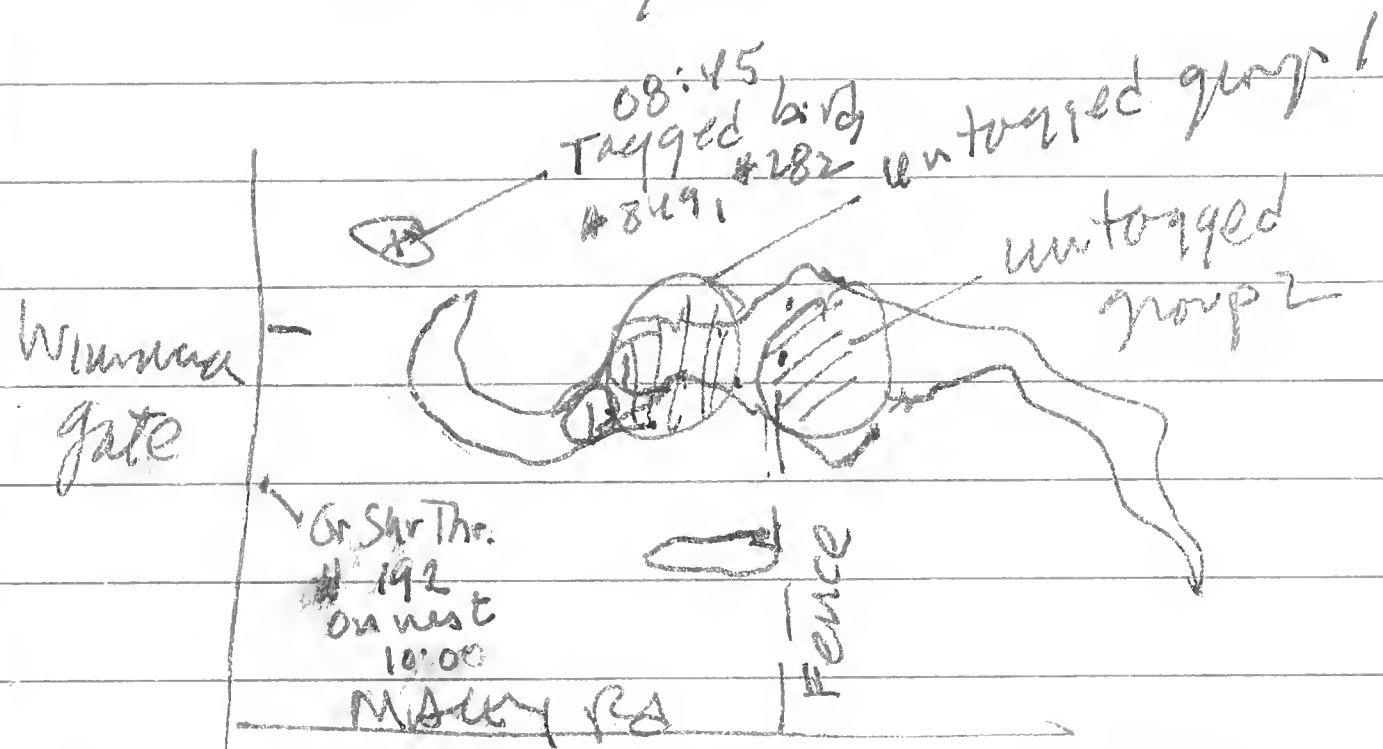 08:45
Tagged bird
#849, #282
untagged group 1
untagged
group 2
gate
Gr Shr Thr.
# 192
on nest
10:00
Fence